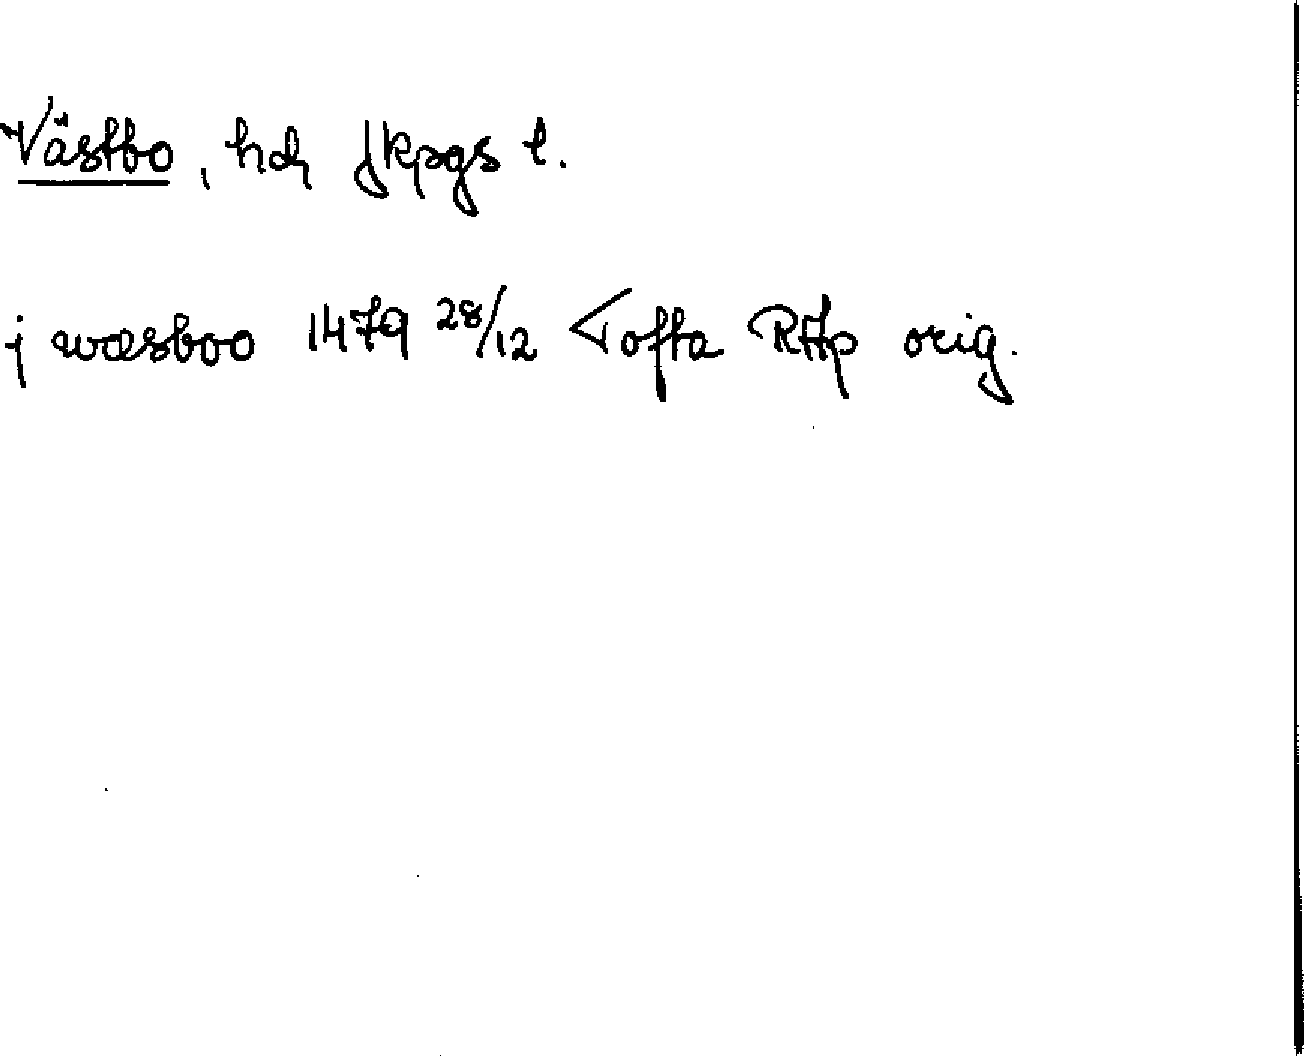 Västbo, hd Jkpgs l.
j wæsboo 1479 28/12 Tofta RAp orig.